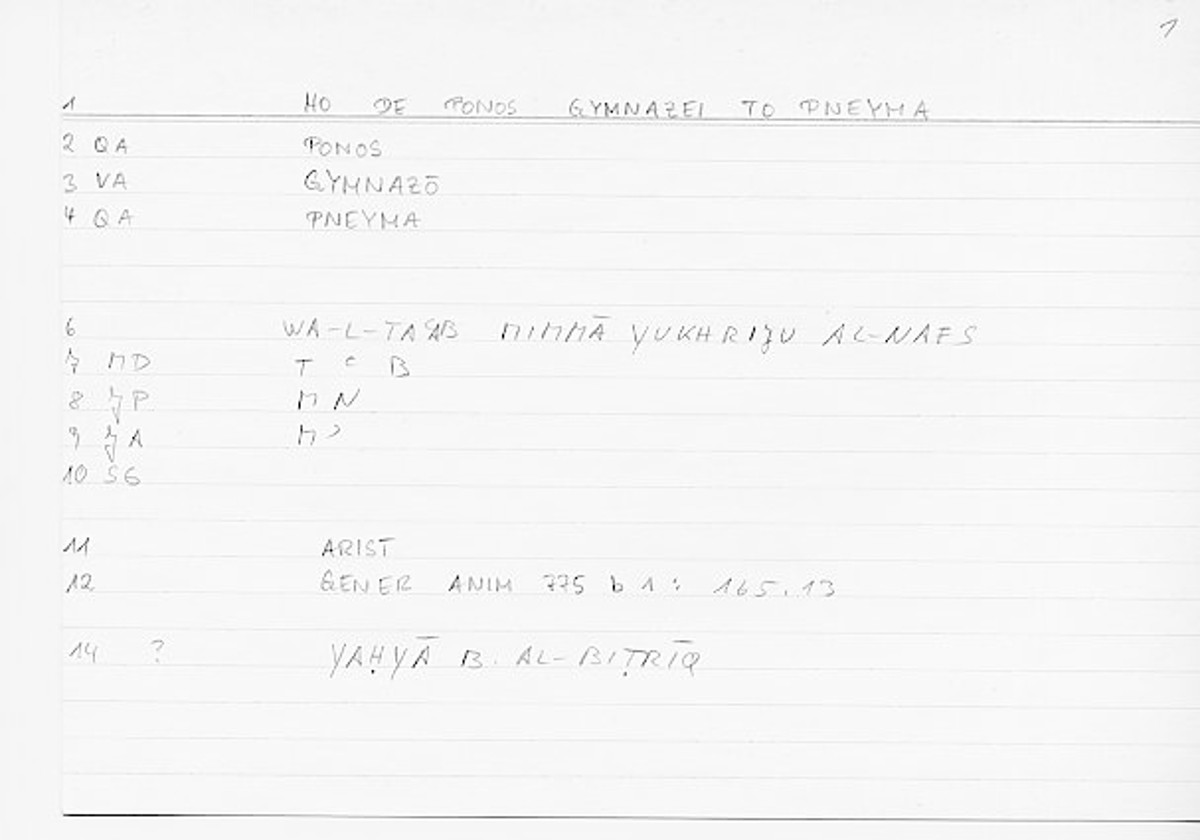 1
1 HO DE PONOS GYMNAZEI TO PNEYMA
2 QA PONOS
3 VA GYMNAZŌ
4 QA PNEYMA
6 WA-L-TAʿAB MIMMĀ YUKHRIǧU AL-NAFS
7 MD T ʿ B
8 ǧP M N
9 ǧA M ʾ
10 SG
11 ARIST
12 GENER ANIM 775 b 1 : 165.13
14 ? YAḤYĀ B. AL-BIṬRĪQ